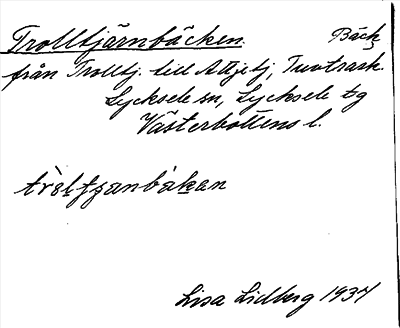 Trolltjärnbäcken Bäck
från Trolltj. till Attjetj, Tuvträsk.
Lycksele sn, Lycksele tg
Västerbottens l.
Lisa Lidberg 1937